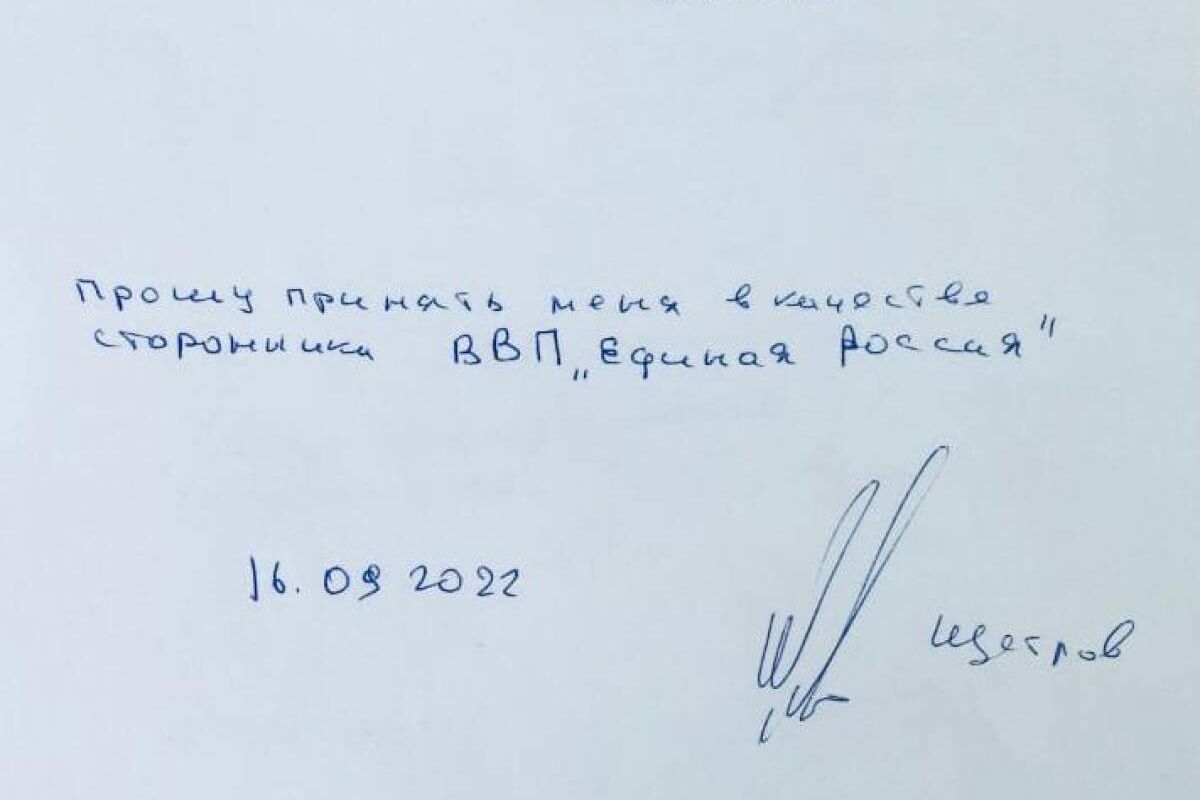 Прошу принять меня в качестве
сторонника ВВП „Единая Россия"
16.09 2022
Щетров